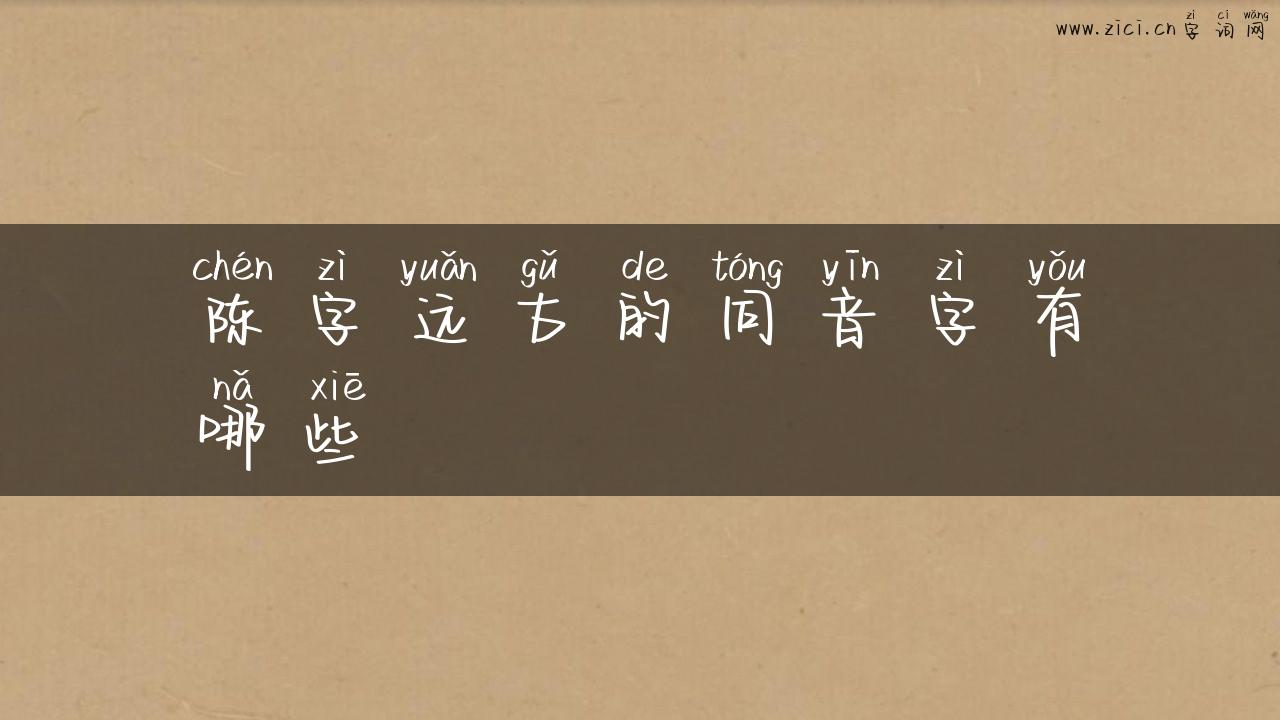 zì cí wǎng
www.zici.cn 字词网
chén zì yuǎn gǔ de tóng yīn zì yǒu
陈字远古的同音字有
nǎ xiē
哪些